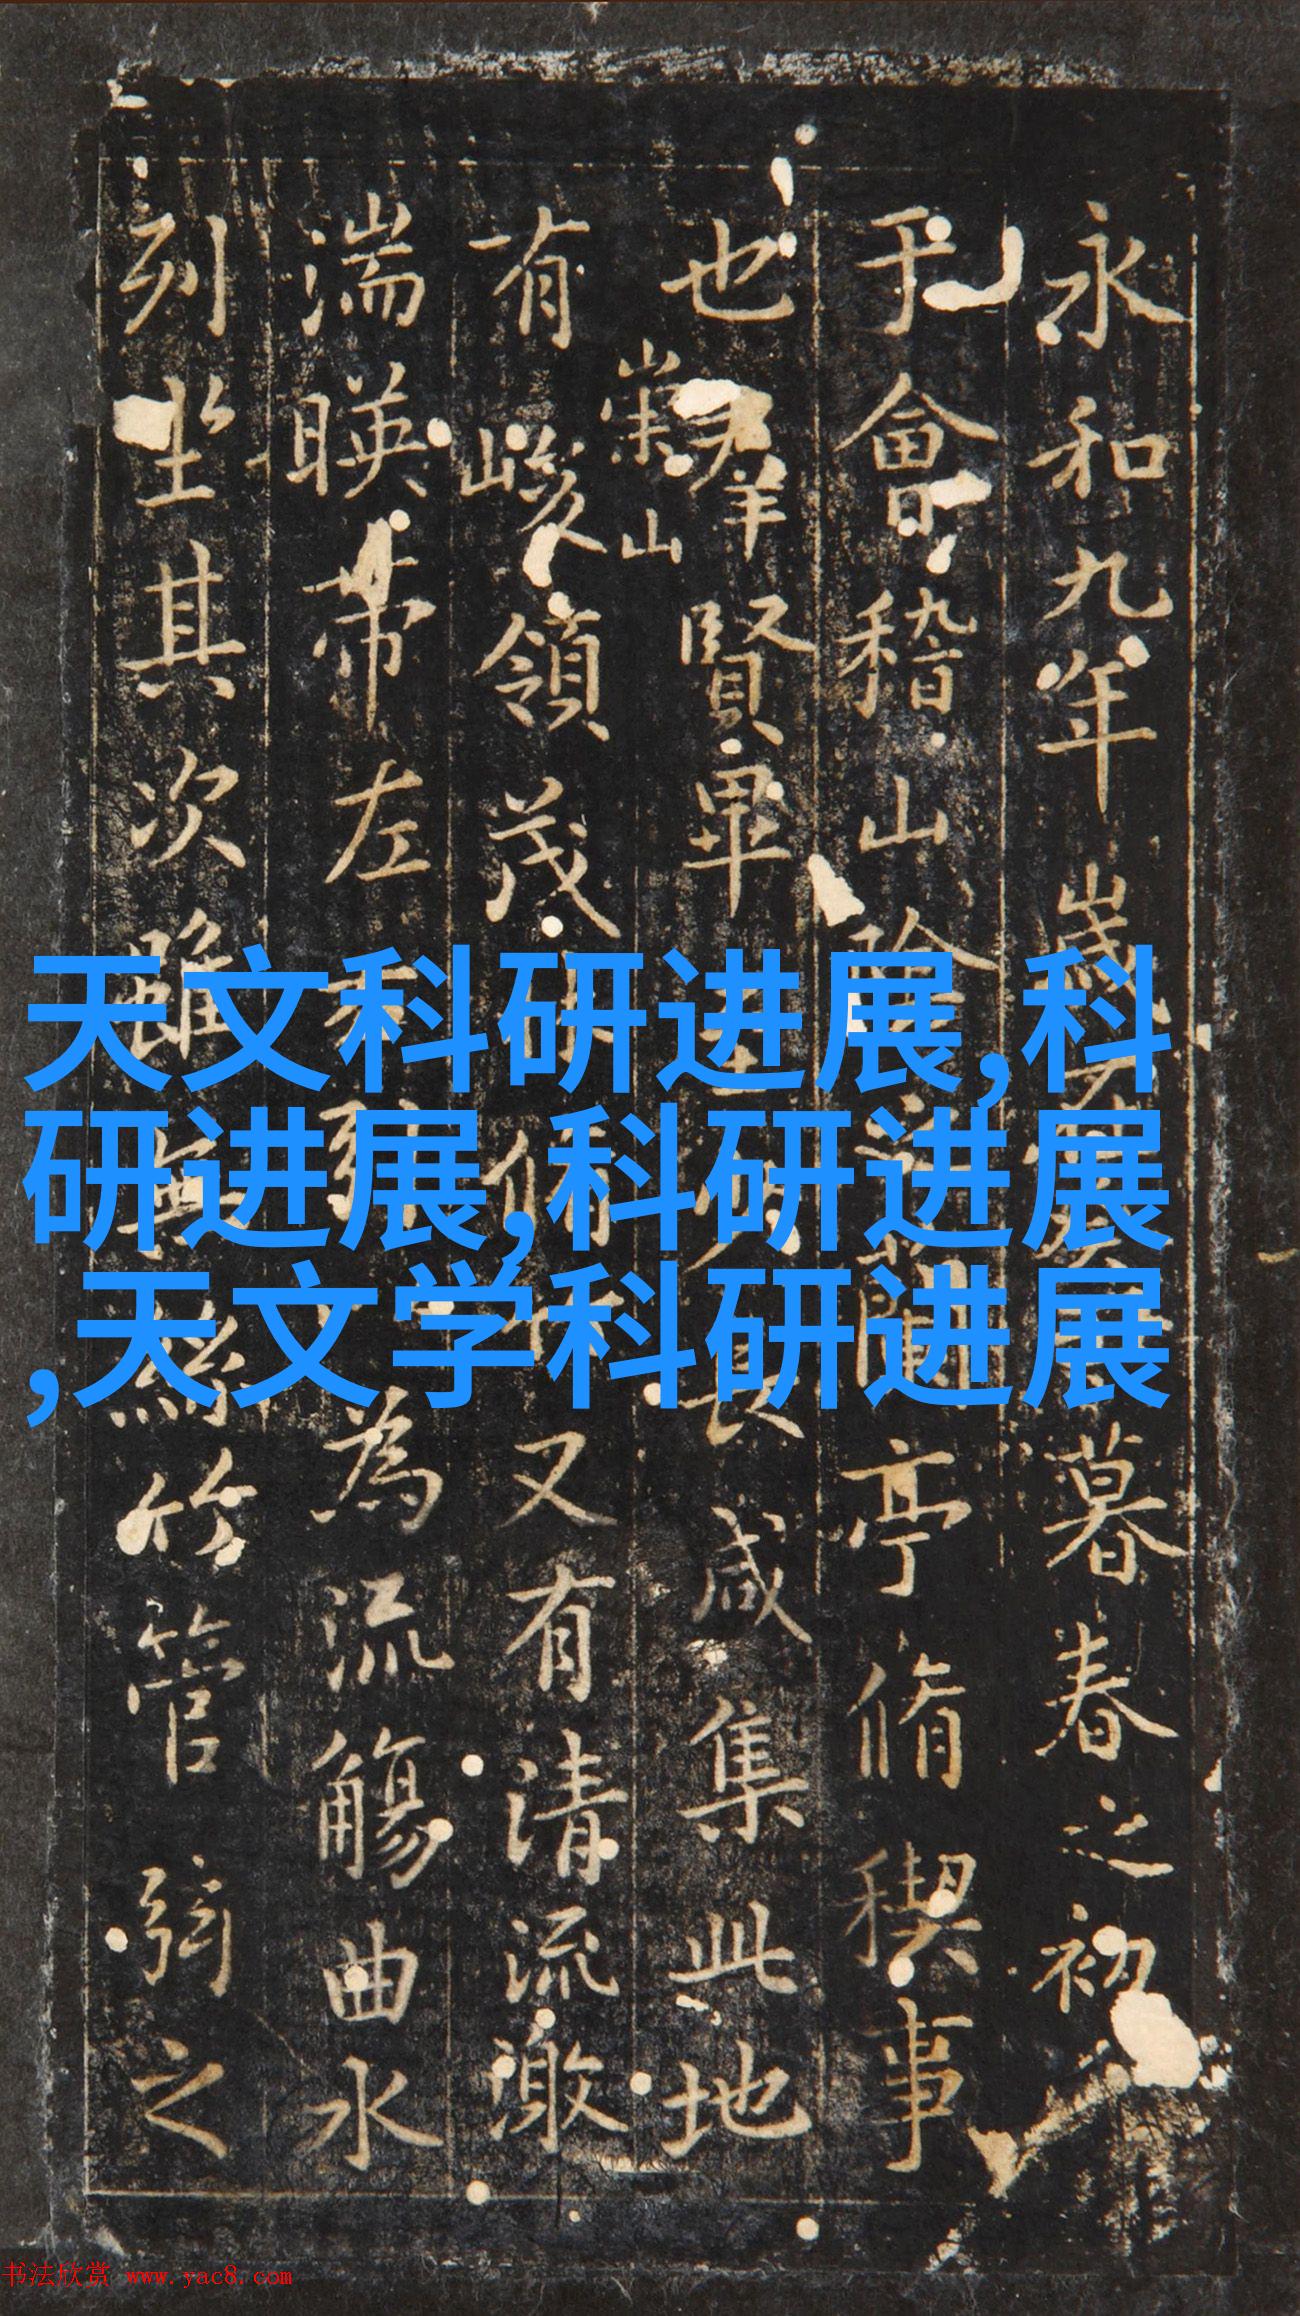 永和九年歲暮春之初
于會稽山陰之蘭亭脩稧事
也羣賢畢至少長咸集此地
有崇山峻領茂林脩竹又有清流激
湍暎帶左右引為流觴曲水
列坐其次雖無絲竹管弦之
天文科研进展,科
研进展,科研进展
,天文学科研进展
书法欣赏 www.yac8.com